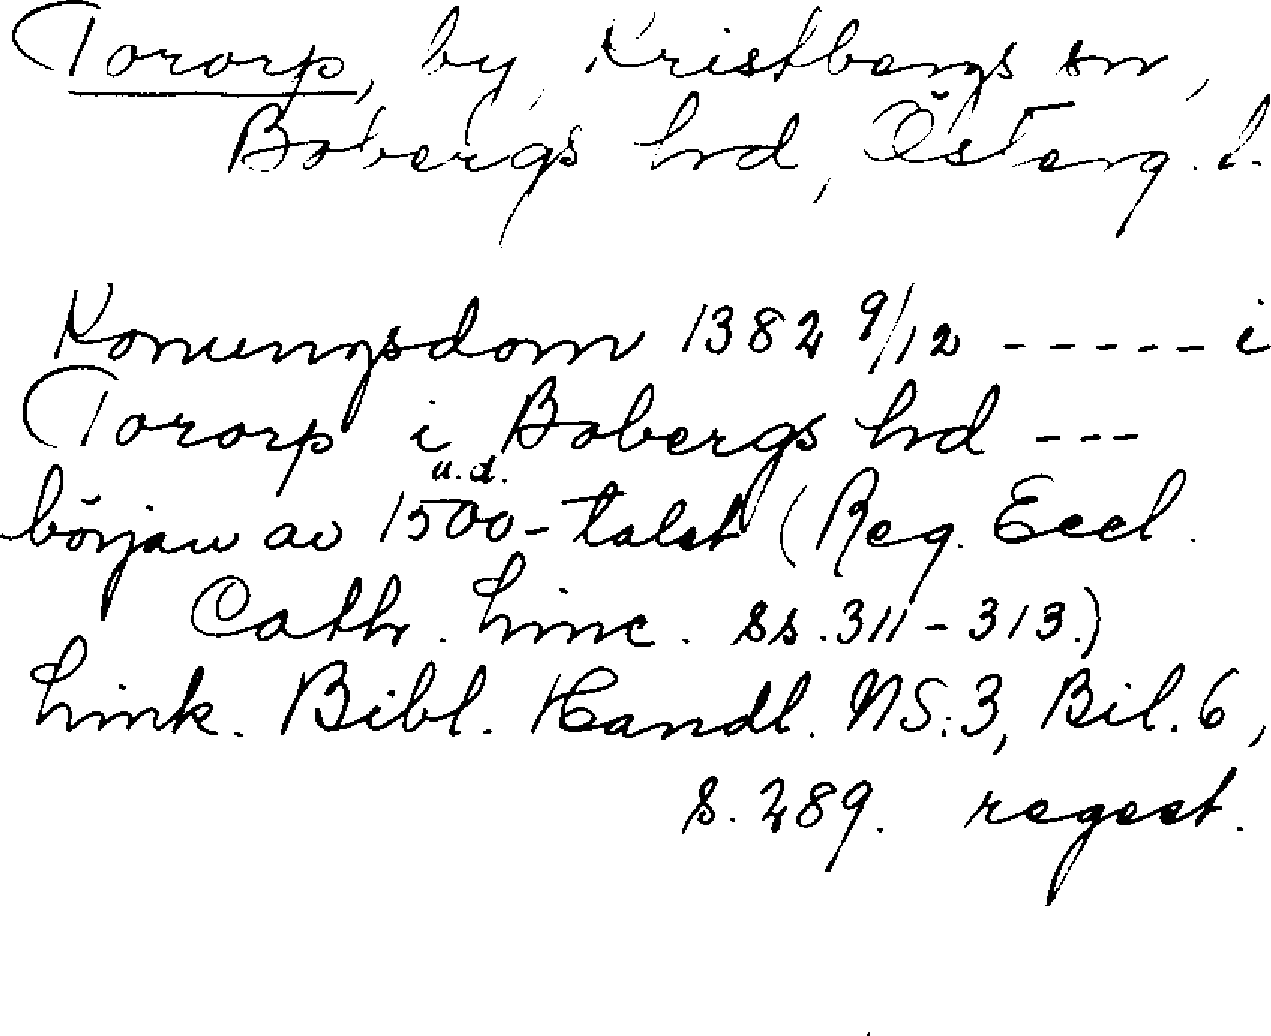 Tororp, by, Kristbergs sn,
Bobergs hrd, Österg. l.
Konungsdom 1382 9/12 ----- i
Tororp i Bobergs hrd ---
u.d.
början av 1500-talet (Reg. Eccl.
Cath. Linc. ss. 311-313.)
Link. Bibl. Handl. NS:3, Bil. 6,
s. 289. regest.